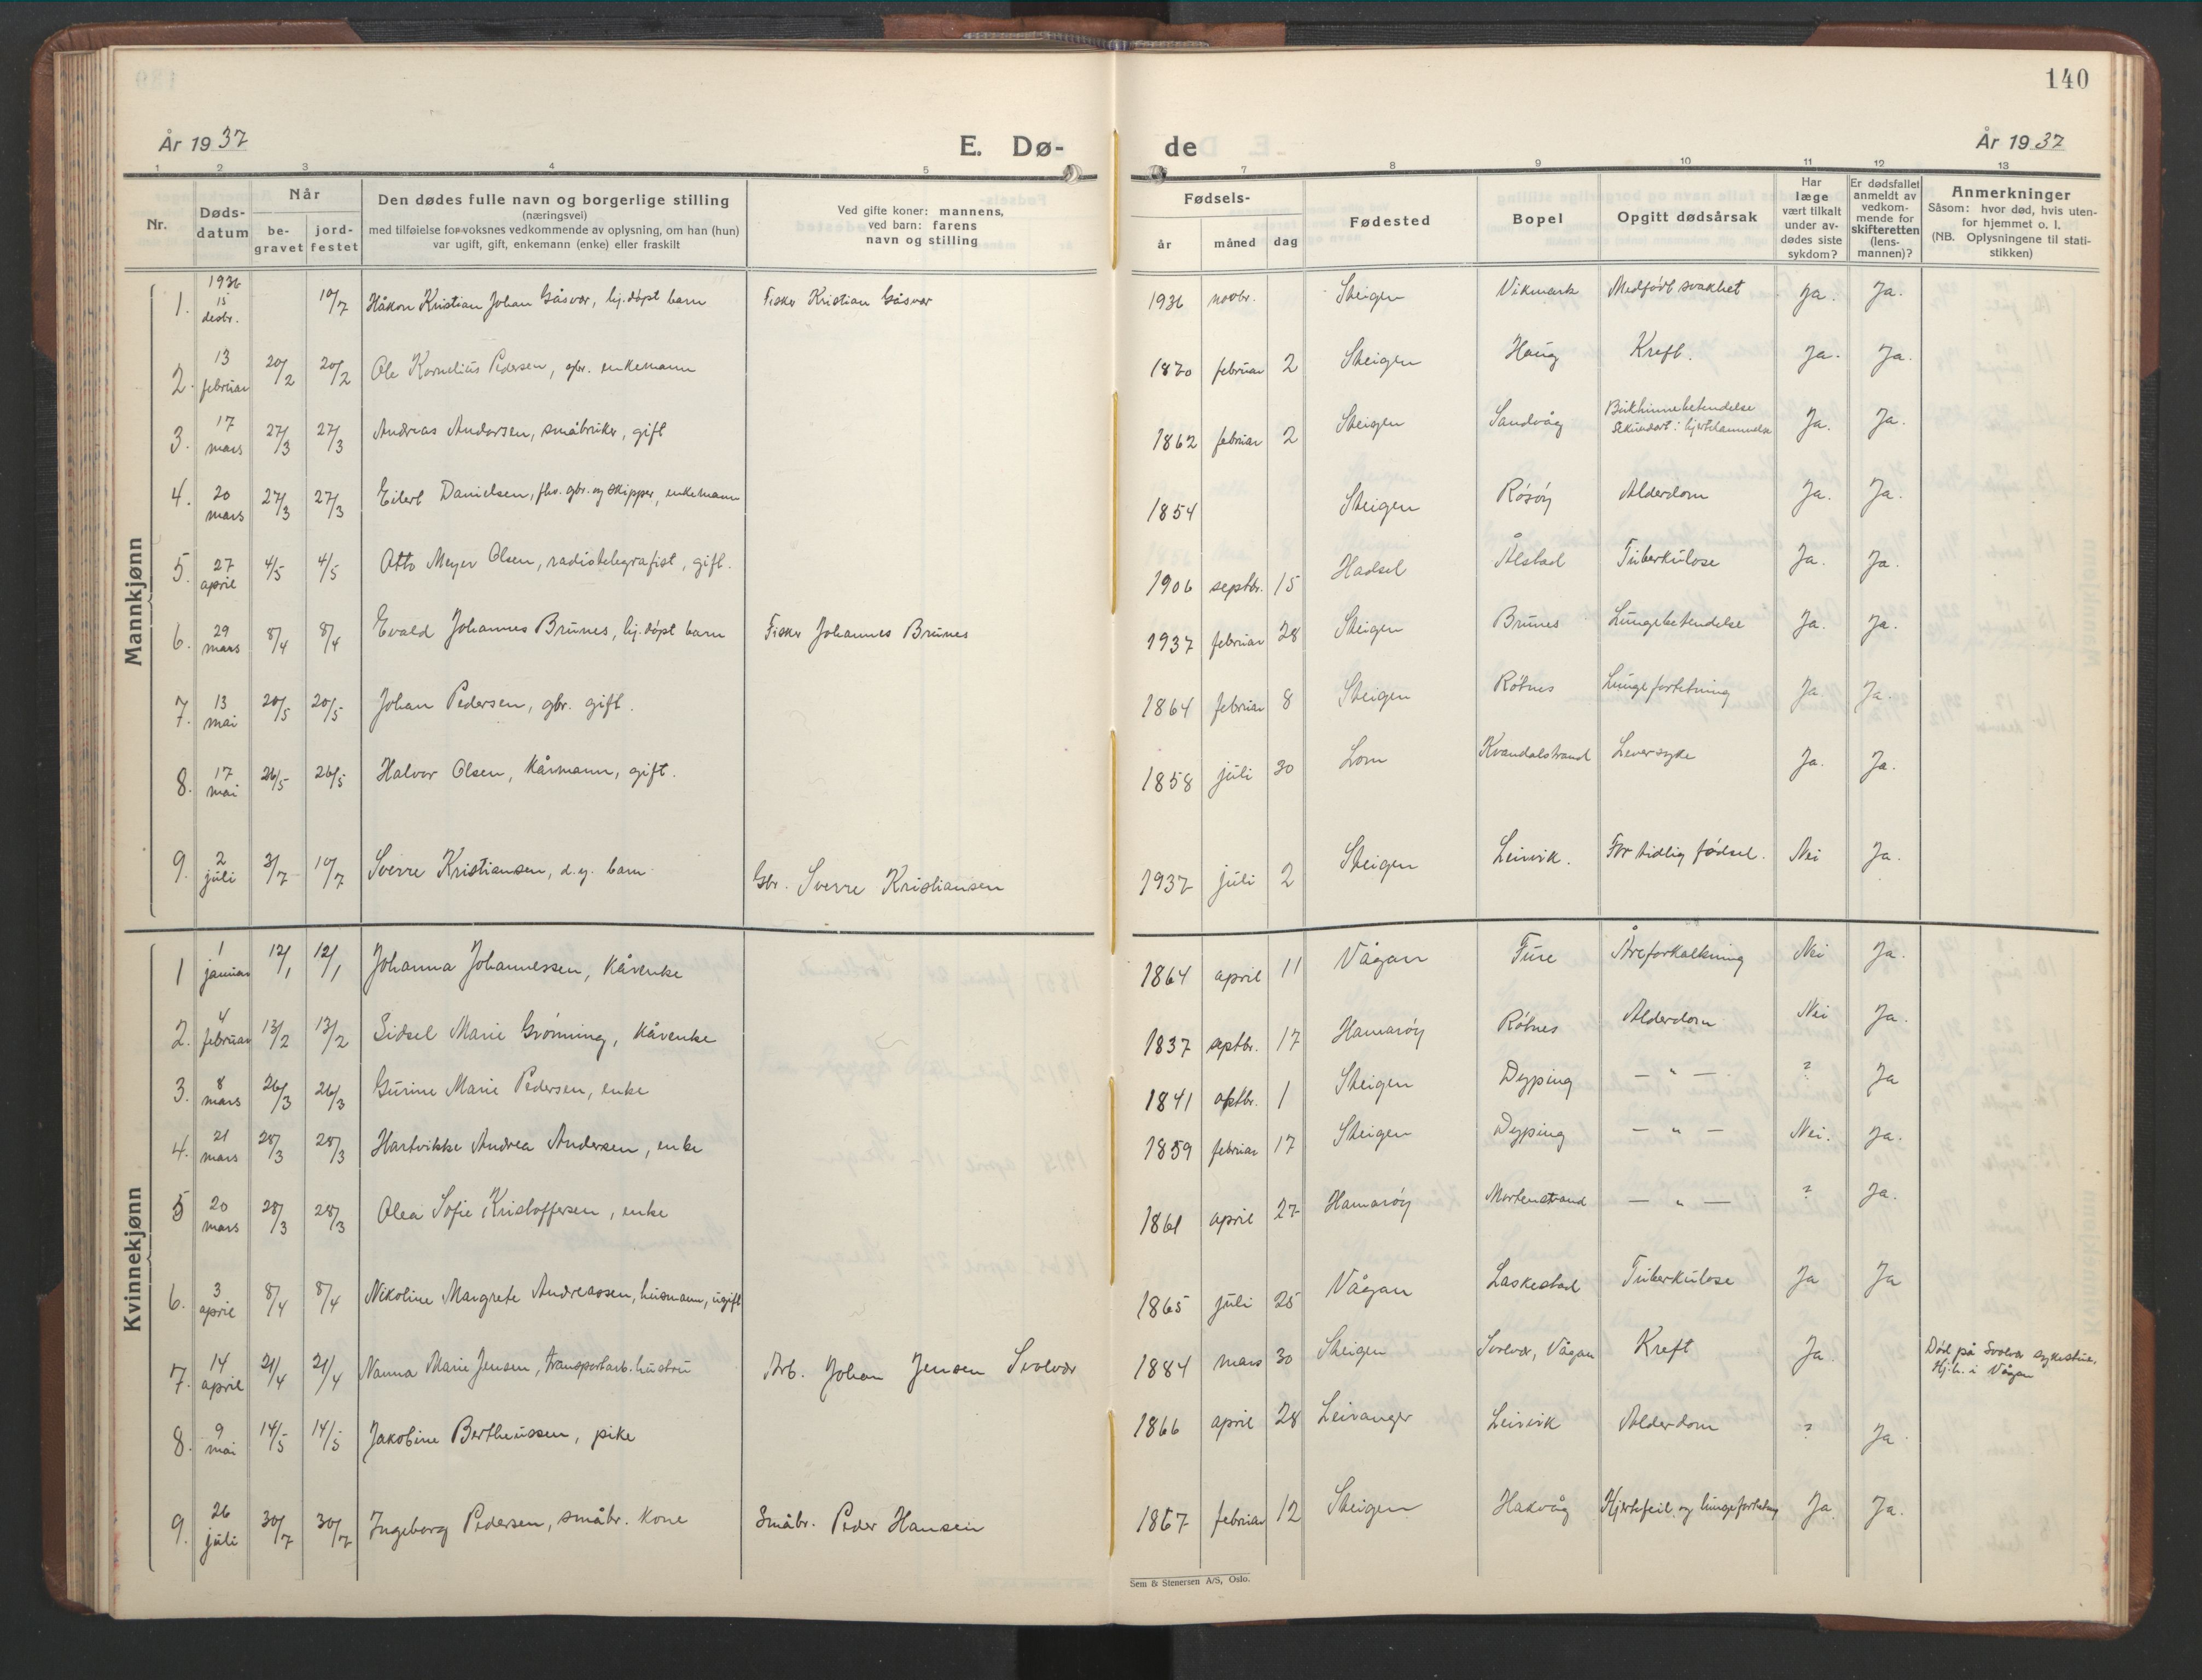 140
År 1937 E. Dø- de År 1937
1 2 3 4 5 7 8 9 10 11 12 13
Nr.
Døds-
datum
Når
be-
gravet
jord-
festet
Den dødes fulle navn og borgerlige stilling
(næringsvei)
med tilføielse for voksnes vedkommende av oplysning, om han (hun)
var ugift, gift, enkemann (enke) eller fraskilt
Ved gifte koner: mannens,
ved barn: farens
navn og stilling
Fødsels-
år måned dag
Fødested
Bopel
Opgitt dødsårsak
Har
læge
vært tilkalt
under av-
dødes siste
sykdom?
Er dødsfallet
anmeldt av
vedkom-
mende for
skifteretten
(lens-
mannen)?
Anmerkninger
Såsom: hvor død, hvis uten-
for hjemmet o. l.
(NB. Oplysningene til stati-
stikken)
Mannkjønn
1. 1936 15 desbr. 10/7 Håkon Kristian Johan Gåsvær, hj.døpt barn Fisker Kristian Gåsvær 1936 novbr. Steigen Vikmark Medfødt svakhet Ja. Ja.
2. 13 februar 20/2 20/2 Ole Kornelius Pedersen, gbr. enkemann 1870 februar 2 Steigen Haug Kreft. Ja. Ja.
3. 17 mars 27/3 27/3 Andreas Andersen, småbruker, gift 1862 februar 2 Steigen Sandvåg Bukhinnebetendelse
sekundært: hjertelammelse Ja. Ja.
4. 20 mars 27/3 27/3 Eilert Danielsen, fhv. gbr. og skipper, enkemann 1854 Steigen Røsøy Alderdom Ja. Ja.
5. 27 april 4/5 4/5 Otto Meyer Olsen, radiotelegrafist, gift. 1906 septbr. 15 Hadsel Ålstad Tuberkulose Ja. Ja.
6. 29 mars 8/4 8/4 Evald Johannes Brunes, hj.døpt barn Fisker Johannes Brunes 1937 februar 28 Steigen Brunes Lungebetendelse Ja. Ja.
7. 13 mai 20/5 20/5 Johan Pedersen, gbr. gift. 1864 februar 8 Steigen Røtnes Lungefortetning Ja Ja.
8. 17 mai 26/5 26/5 Halvor Olsen, kårmann, gift. 1858 juli 30 Lom Kvandalstrand Leversyke Ja. Ja.
9. 2 juli 3/7 10/7 Sverre Kristiansen, d.y. barn Gbr. Sverre Kristiansen 1937 juli 2 Steigen Leivik. For tidlig fødsel. Nei Ja.
Kvinnekjønn
1 1 januar 12/1 12/1 Johanna Johannessen, kårenke 1864 april 11 Vågan Fure Åreforkalkning Nei Ja.
2. 4 februar 13/2 13/2 Sidsel Marie Grønning, kårenke 1837 septbr. 17 Hamarøy Røtnes Alderdom Nei Ja.
3. 8 mars 26/3 26/3 Gurine Marie Pedersen, enke 1841 1 Steigen Dyping — " — ? Ja
4. 21 mars 28/3 28/3 Hartvikke Andrea Andersen, enke 1859 februar 17 Steigen Dyping — " — Nei. Ja.
5 20 mars 28/3 28/3 Olea Sofie Kristoffersen, enke 1861 april 27 Hamarøy Mortenstrand — " — ? Ja.
6. 3 april 8/4 8/4 Nikoline Margrete Andreassen, husmann, ugift 1865 juli 25 Vågan Laskestad Tuberkulose Ja Ja
7. 14 april 21/4 21/4 Nanna Marie Jensen, transportarb. hustru Arb. Johan Jensen Svolvær 1884 mars 30 Steigen Svolvær, Vågan Kreft Ja. Ja Død på Svolvær sykestue.
Hj.h. i Vågan
8. 9 mai 14/5 14/5 Jakobine Bertheussen, pike 1866 april 28 Leivanger Leivik Alderdom ? Ja
9. 26 juli 30/7 30/7 Ingeborg Pedersen, småbr. kone Småbr. Peder Hansen 1867 februar 12 Steigen Hakvåg Hjertefeil og lungefortetning Ja. Ja.
Sem & Stenersen A/S, Oslo.